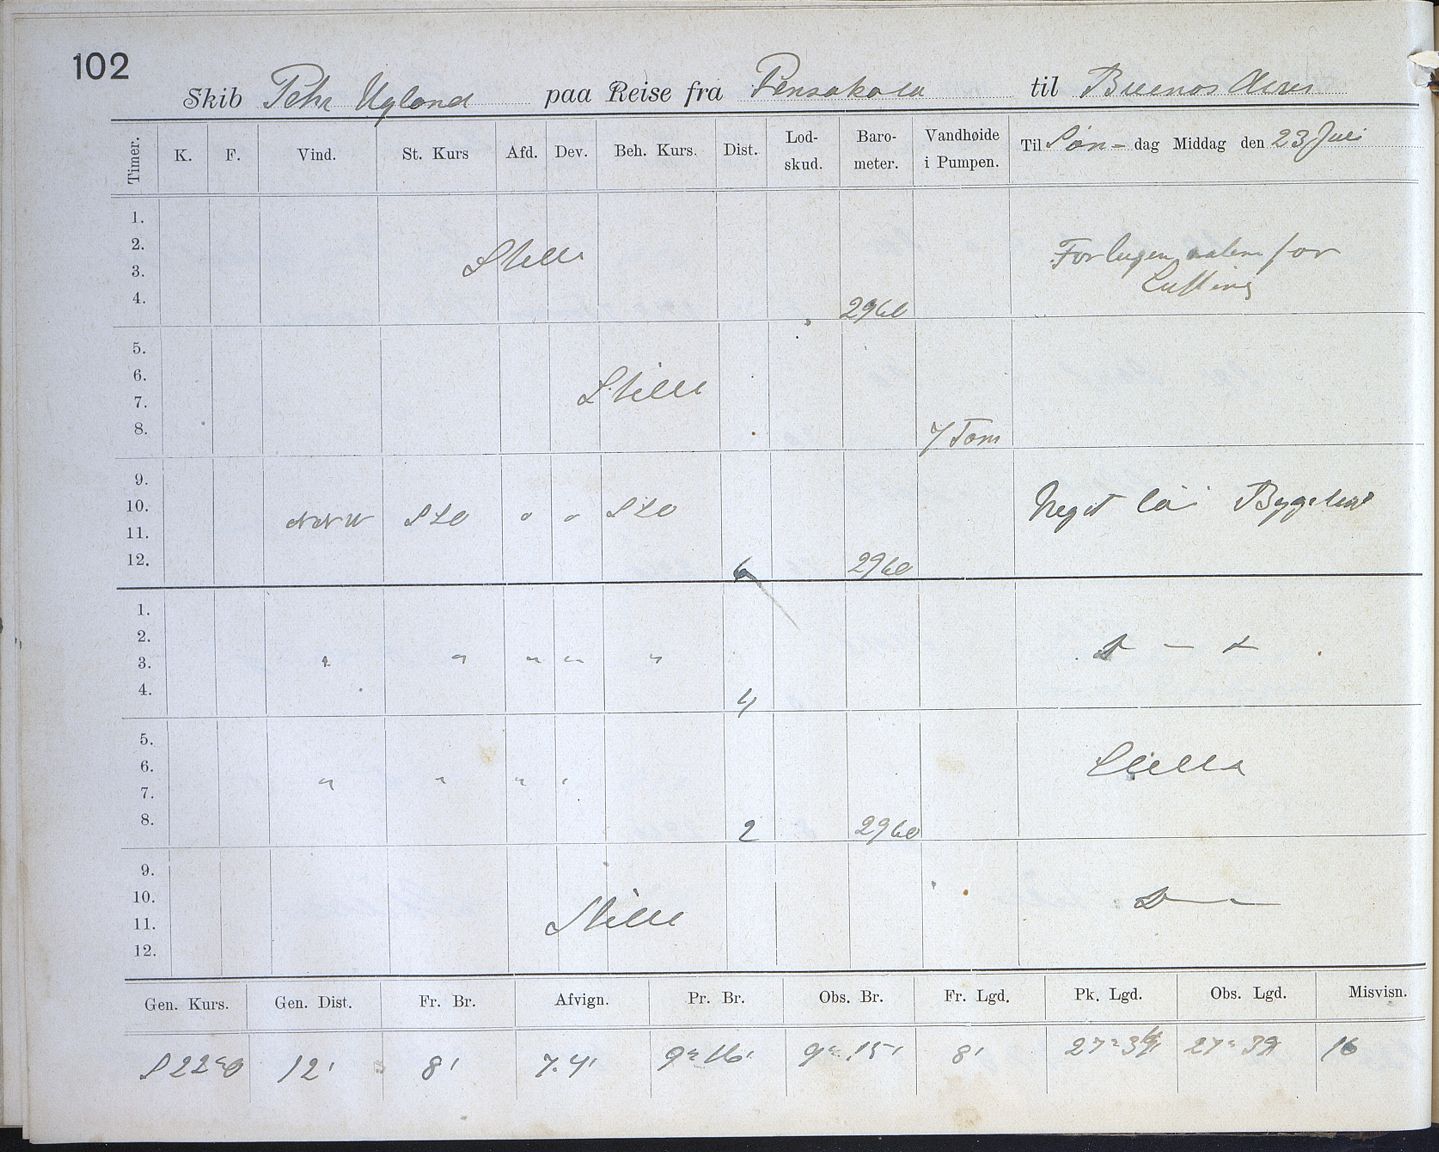 102
Skib Pehr Ugland paa Reise fra Pensakola til Buenos Aires
Timer. K. F. Vind. St. Kurs Afd. Dev. Beh. Kurs. Dist. Lod-skud. Baro-meter. Vandhøide i Pumpen. Til Søn- dag Middag den 23 Juli
1.
2. Stille for
3. Luftning
4. 2960
5.
6. Stille
7.
8. 7 Tom
9.
10. NNW SSO o o SSO Meget i
11.
12. 6 2960
1.
2.
3. " " " " "
4. 4
5.
6. Stille
7. " " " "
8. 2 2960
9.
10.
11. Stille
12.
Gen. Kurs. Gen. Dist. Fr. Br. Afvign. Pr. Br. Obs. Br. Fr. Lgd. Pk. Lgd. Obs. Lgd. Misvisn.
S22°O 12' 8' 7.4' 9° 16' 9° 15' 8' 27° 27° 39 16